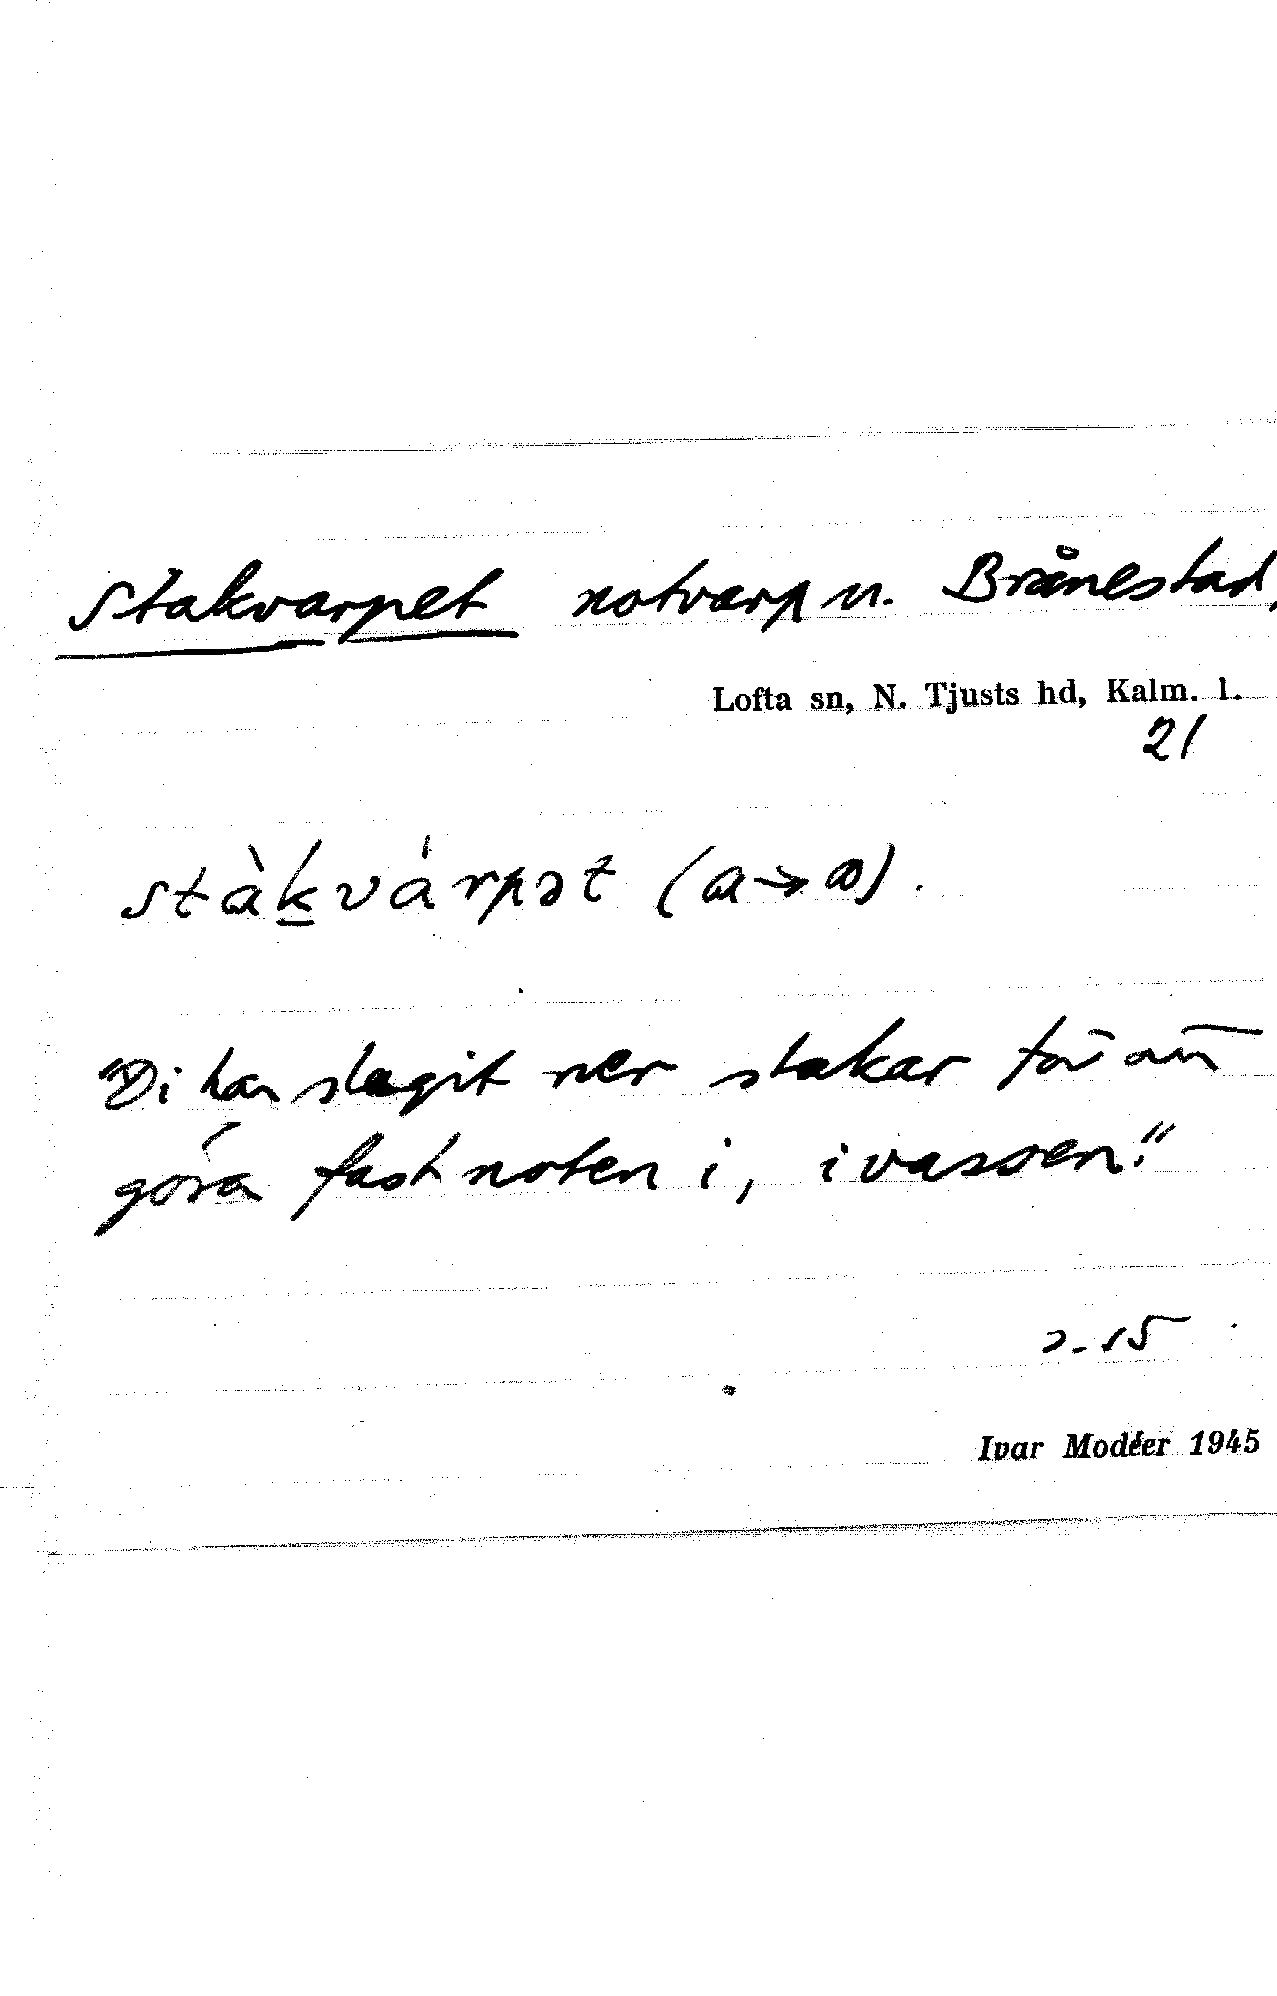 Stakvarpet notvarp n. Brånestad,
Lofta sn, N. Tjusts hd, Kalm. l.
21
stàkvárpət (a→ɷ).
"Di har slagit ner stakar för att
göra fast noten i, i vassen."
2-15
Ivar Modéer 1945